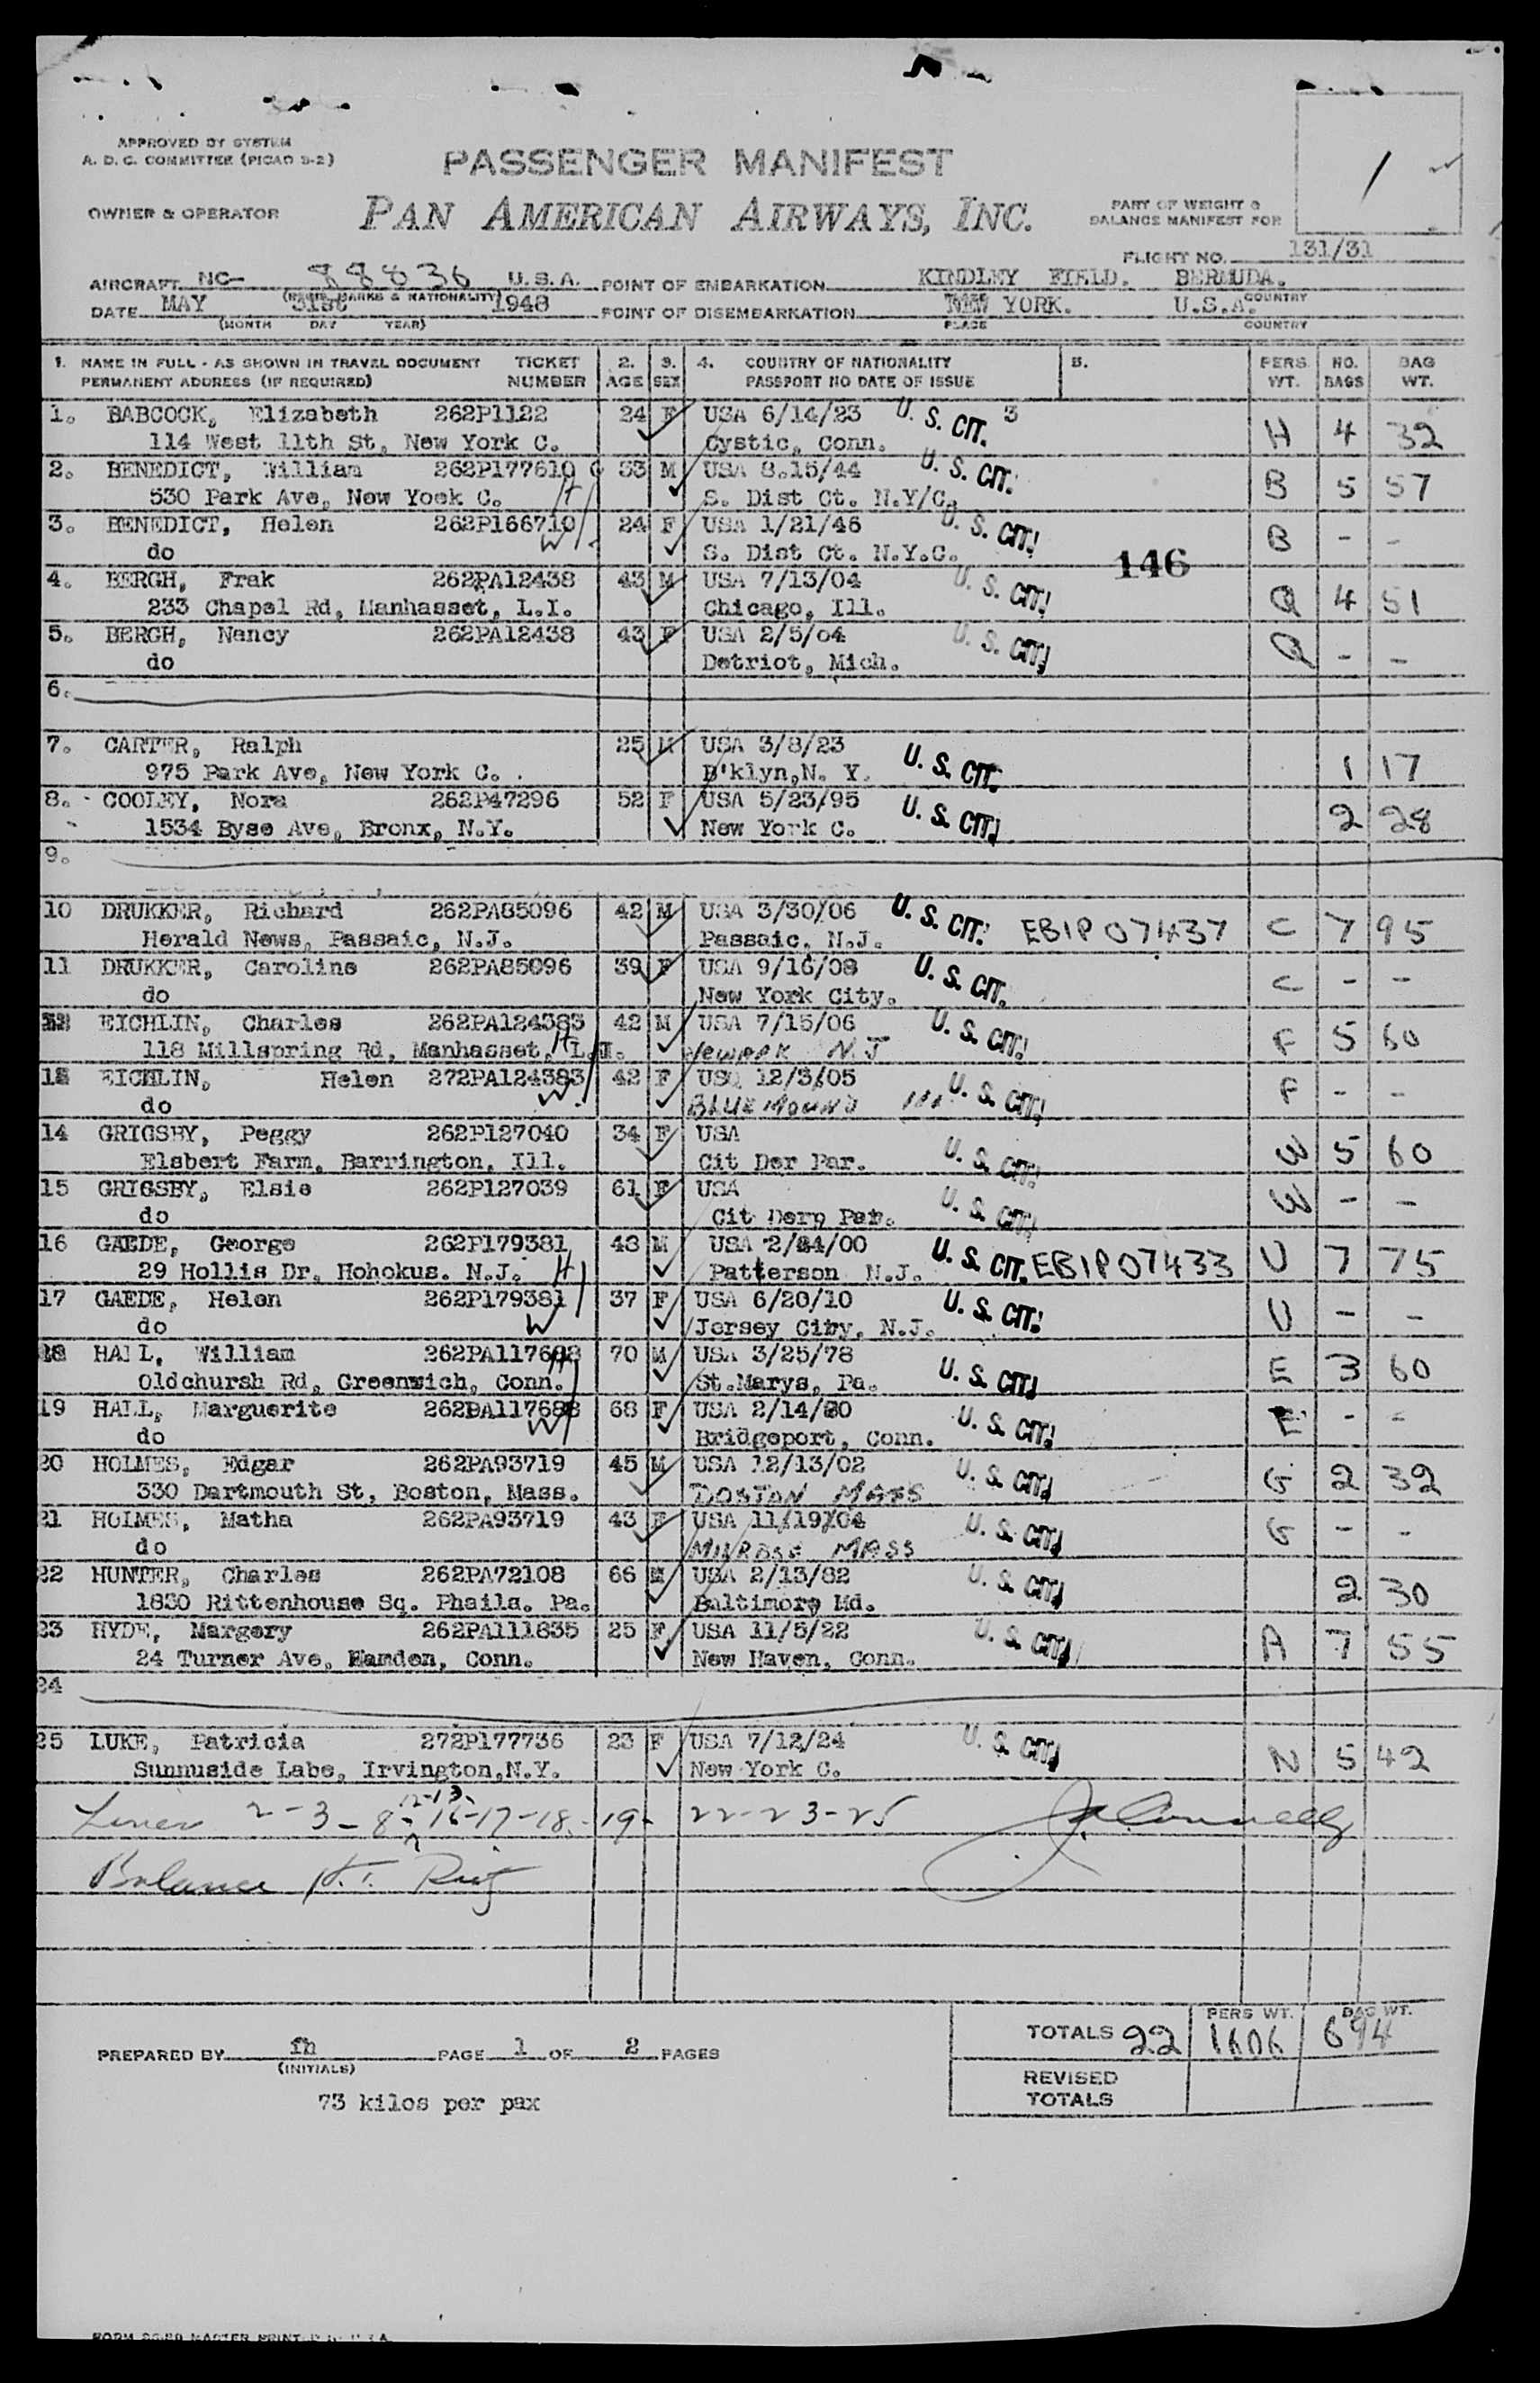 APPROVED BY SYSTEM
A. D. C. COMMITTEE (PICAO S-2)
PASSENGER MANIFEST
1
OWNER & OPERATOR
PAN AMERICAN AIRWAYS, INC.
PART OF WEIGHT &
BALANCE MANIFEST FOR
FLIGHT NO. 131/31
AIRCRAFT NC- 88836 U.S.A. POINT OF EMBARKATION KINDLEY FIELD. BERMUDA.
(REGIS. MARKS & NATIONALITY) COUNTRY
DATE MAY 31st 1948 POINT OF DISEMBARKATION NEW YORK. U.S.A.
(MONTH DAY YEAR) PLACE COUNTRY
1. NAME IN FULL - AS SHOWN IN TRAVEL DOCUMENT TICKET 2. 3. 4. COUNTRY OF NATIONALITY 5. PERS NO. BAG
PERMANENT ADDRESS (IF REQUIRED) NUMBER AGE SEX PASSPORT NO DATE OF ISSUE WT. BAGS WT.
1. BABCOCK, Elizabeth 262P1122 24 F USA 6/14/23 U. S. CIT. 3
114 West 11th St, New York C. Cystic, Conn. H 4 32
2. BENEDICT, William 262P177610 33 M USA 8.15/44 U. S. CIT.
530 Park Ave, New Yoek C. H S. Dist Ct. N.Y/C. B 5 57
3. BENEDICT, Helen 262P166710 24 F USA 1/21/46 U. S. CIT.
do W S. Dist Ct. N.Y.C. 146 B - -
4. BERGH, Frak 262PA12438 43 M USA 7/13/04 U. S. CIT.
233 Chapel Rd, Manhasset, L.I. Chicago, Ill. Q 4 51
5. BERGH, Nancy 262PA12438 43 F USA 2/5/04 U. S. CIT.
do Detriot, Mich. Q - -
6.
7. CARTER, Ralph 25 M USA 3/8/23 U. S. CIT.
975 Park Ave, New York C. B'klyn,N. Y. 1 17
8. COOLEY, Nora 262P47296 52 F USA 5/23/95 U. S. CIT.
1534 Byse Ave, Bronx, N.Y. New York C. 2 28
9.
10 DRUKKER, Richard 262PA85096 42 M USA 3/30/06 U. S. CIT. EBIP 07437 C 7 95
Herald News, Passaic, N.J. Passaic, N.J.
11 DRUKKER, Caroline 262PA85096 39 F USA 9/16/08 U. S. CIT.
do New York City. C - -
12 EICHLIN, Charles 262PA124383 42 M USA 7/15/06 U. S. CIT.
118 Millspring Rd, Manhasset, L.I. H Newark N J F 5 60
13 EICHLIN, Helen 272PA124383 42 F USA 12/3/05 U. S. CIT.
do W. BLUE MOUND Ill F - -
14 GRIGSBY, Peggy 262P127040 34 F USA U. S. CIT.
Elsbert Farm, Barrington, Ill. Cit Der Par. W 5 60
15 GRIGSBY, Elsie 262P127039 61 F USA U. S. CIT.
do Cit Derp Par. W - -
16 GAEDE, George 262P179381 48 M USA 2/24/00 U. S. CIT. EBIP07433 U 7 75
29 Hollis Dr, Hohokus. N.J. H Patterson N.J.
17 GAEDE, Helen 262P179381 37 F USA 6/20/10 U. S. CIT.
do W Jersey City, N.J. U - -
18 HALL, William 262PA117688 70 M USA 3/25/78 U. S. CIT.
Oldchursh Rd, Greenwich, Conn. H St.Marys, Pa. E 3 60
19 HALL, Marguerite 262PA117688 68 F USA 2/14/80 U. S. CIT.
do W Bridgeport, Conn. E - -
20 HOLMES, Edgar 262PA93719 45 M USA 12/13/02 U. S. CIT.
330 Dartmouth St, Boston, Mass. BOSTON MASS G 2 32
21 HOLMES, Matha 262PA93719 43 F USA 11/19/04 U. S. CIT.
do MELROSE MASS G - -
22 HUNTER, Charles 262PA72108 66 M USA 2/13/82 U. S. CIT.
1830 Rittenhouse Sq. Phaila. Pa. Baltimore Md. 2 30
23 HYDE, Margery 262PA111835 25 F USA 11/5/22 U. S. CIT.
24 Turner Ave, Hamden, Conn. New Haven, Conn. A 7 55
24
25 LUKE, Patricia 272P177736 23 F USA 7/12/24 U. S. CIT.
Sunnuside Labe, Irvington,N.Y. New York C. N 5 42
2-3-8-12-13-16-17-18-19- 22-23-25
Balance
TOTALS 22 PERS WT. 1606 BAG WT. 694
PREPARED BY fh PAGE 1 OF 2 PAGES
(INITIALS)
REVISED
TOTALS
73 kilos per pax